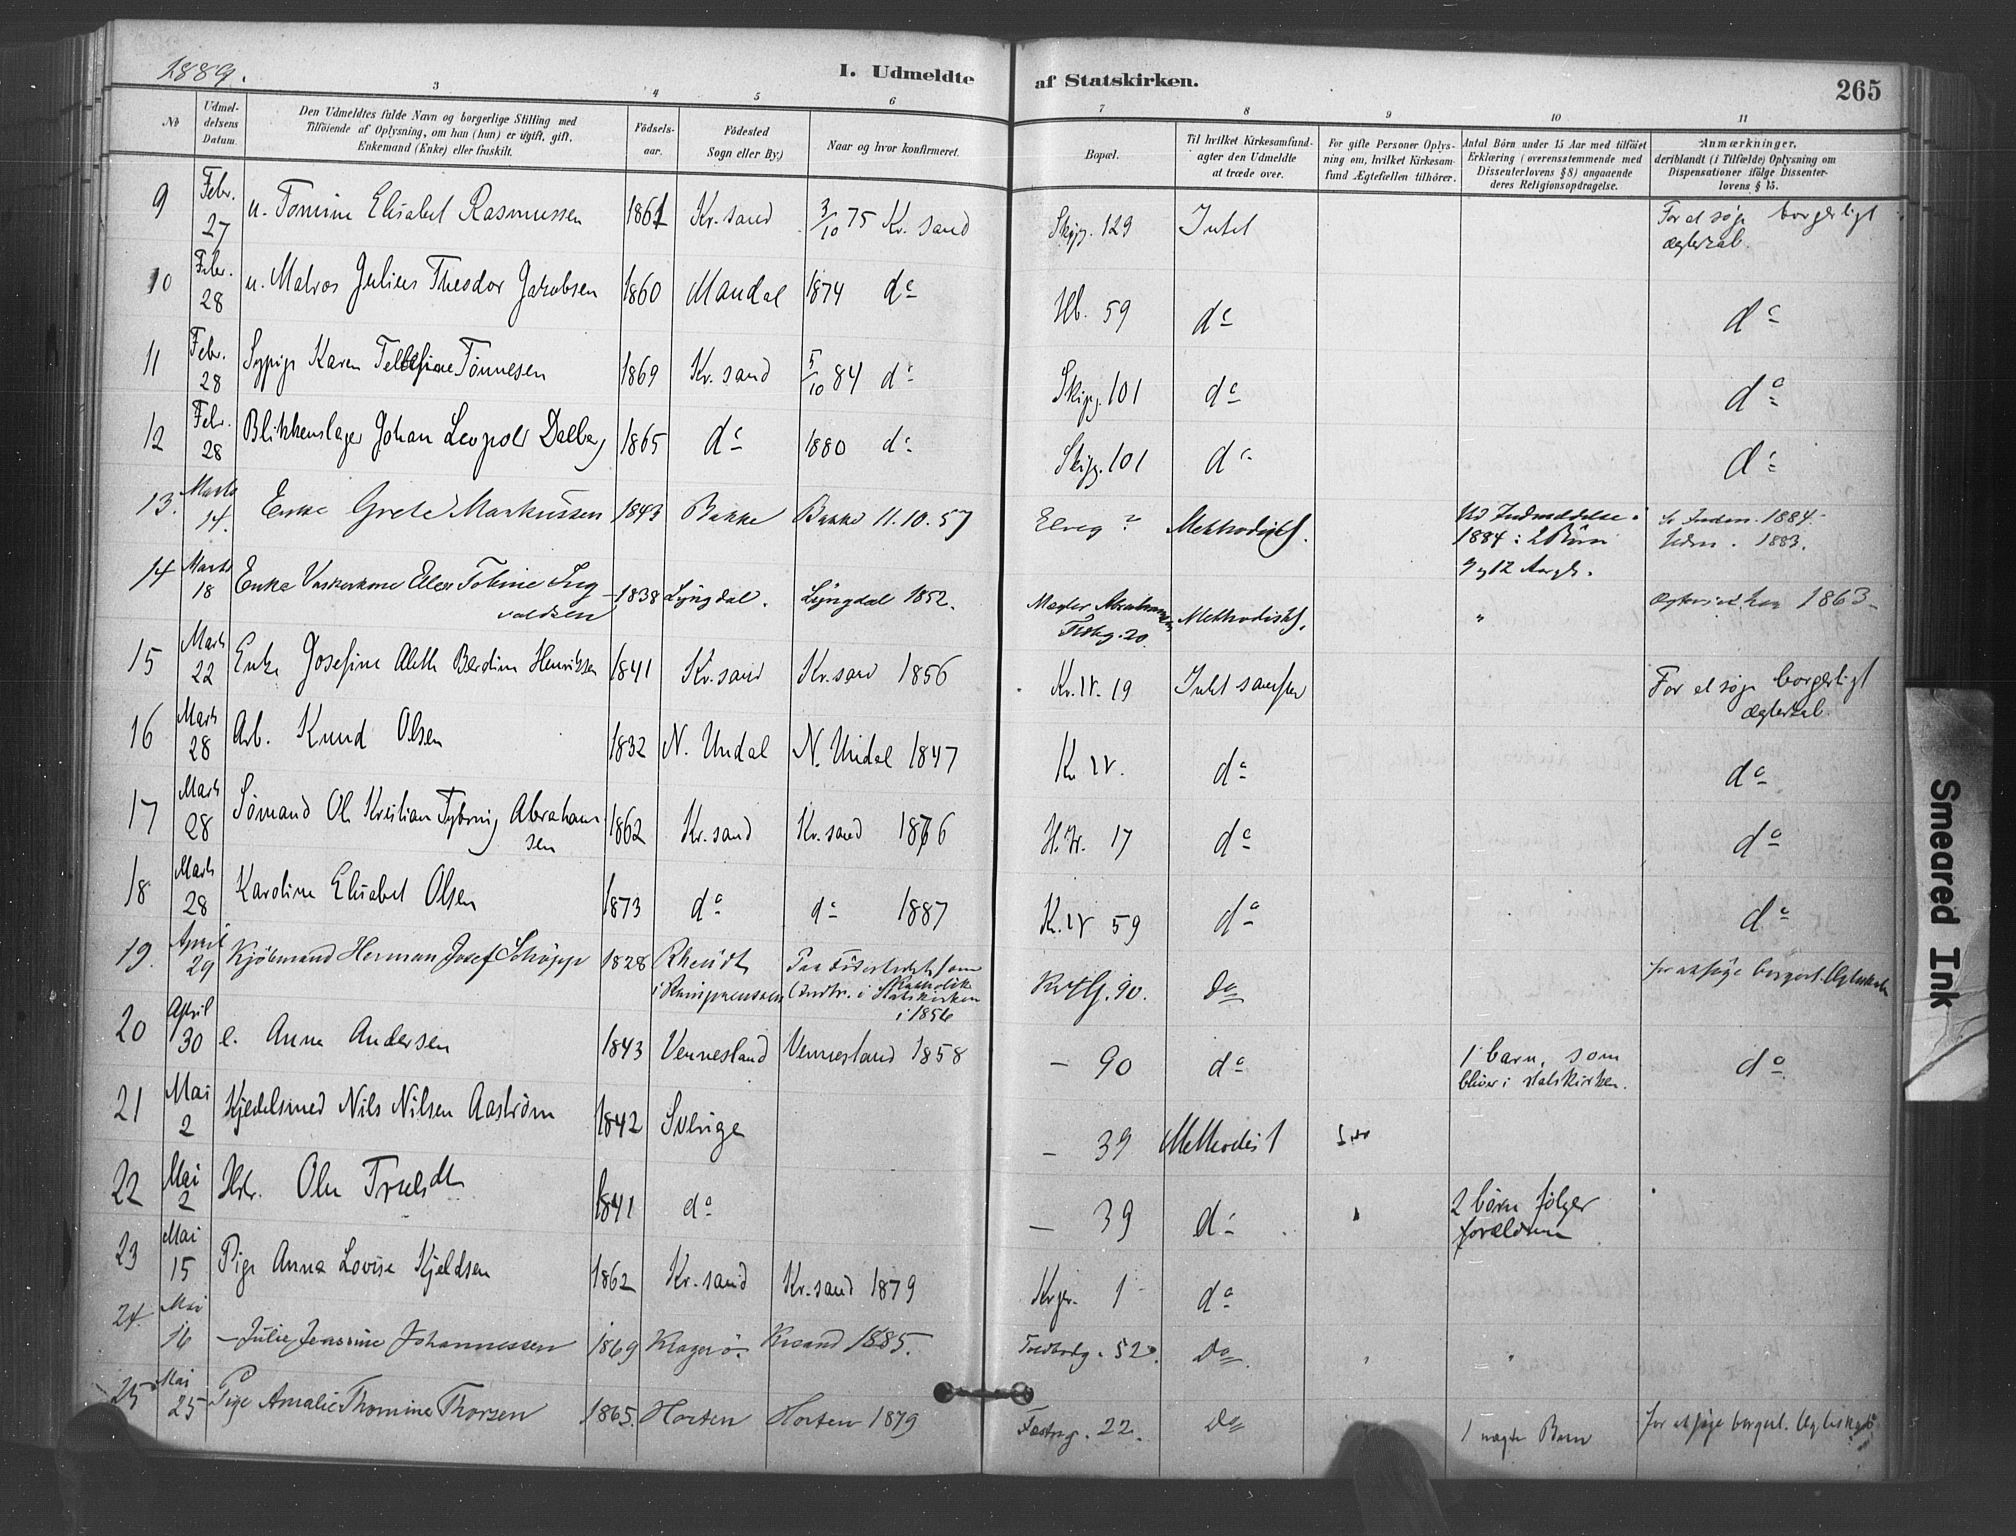 1889.
I. Udmeldte af Statskirken.
265
3 4 5 6 7 8 9 10 11
No
Udmel-
delsens
Datum.
Den Udmeldtes fulde Navn og borgerlige Stilling med
Tilföiende af Oplysning, om han (hun) er ugift, gift,
Enkemand (Enke) eller fraskilt.
Födsels-
aar.
Födested
Sogn eller By.)
Naar og hvor konfirmeret.
Bopæl.
Til hvilket Kirkesamfund
agter den Udmeldte
at træde over.
For gifte Personer Oplys-
ning om, hvilket Kirkesam-
fund Ægtefællen tilhörer.
Antal Börn under 15 Aar med tilföiet
Erklæring (overensstemmende med
Dissenterlovens § 8) angaaende
deres Religionsopdragelse.
Anmærkninger,
deriblandt (i Tilfælde) Oplysning om
Dispensationer ifölge Dissenter-
lovens § 15.
9 Febr. 27 u. Tomine Elisabet Rasmussen 1861 Kr. sand 3/10 75 Kr. sand Skipp. 129 Intet For at søge borgerligt
ægteskab.
10 Febr. 28 u. Matros Julius Theodor Jakobsen 1860 Mandal 1874 do Hb. 59 do do
11 Febr. 28 Sypige Karen Tønnesen 1869 Kr. sand 5/10 84 do Skipp. 101 do do
12 Febr. 28 Blikkenslager Johan Leopold Dalberg 1865 do 1880 do Skipp. 101 do do
13. Marts 14. Enke Grete Markussen 1843 Bakke Bakke 11.10.57 Elveg ? Methodistsf. Ved Indmeldelse i
1884: 2 Børn
9 og 12 Aar gl. 1884
1883.
14 Marts 18 Enke Vaskerkone Ellen Tobine Ing
valdsen 1838 Lyngdal. Lyngdal 1852. Mægler Abrahamsen
Festng. 20. Methodistsf. " 1863
15 Marts 22 Enke Josefine Aleth Berdine Henriksen 1841 Kr. sand Kr. sand 1856 Kr. IV. 19 Intet samfund For at søge borgerligt
ægteskab.
16 Marts 28 Arb. Knud Olsen 1832 N. Undal N. Undal 1847 Kr. IV. do do
17 Marts 28 Sømand Ole Kristian Abraham
sen 1862 Kr. sand Kr. sand 1876 17 do do
18 Marts 28 Karoline Elisabet Olsen 1873 do do 1887 Kr. IV 59 do do
19. April 29 Kjøbmand Herman Josef Schøpp 1828 Rheidt
i Rhinpreussen Paa Fødestedet som
Katholik
Indtr. i Statskirken
i 1856 90. Do for at søge borgerl. Ægteskab
20 April 30 e. Anna Andersen 1843 Vennesland Vennesland 1858 — 90 do 1 barn, som
bliver i statskirken. do
21 Mai 2 Kjedelsmed Nils Nilsen Aaström 1842 Sverige — 39 Methodist
22 Mai 2 Hstr. 1841 do — 39 do 2 børn følger
forældrene
23 Mai 15 Pige Anna Lovise Kjeldsen 1862 Kr. sand Kr. sand 1879 1 do
24. Mai 16 — Julie Jensine Johannessen 1869 Kragerö. Krsand 1885. Toldbodg. 52. Do.
25 Mai 25 Pige Amalie Thomine Thorsen 1865. Horten Horten 1879 Festng. 22. Do 1 uægte Barn for at søge borgerl. Ægteskab
Smeared Ink